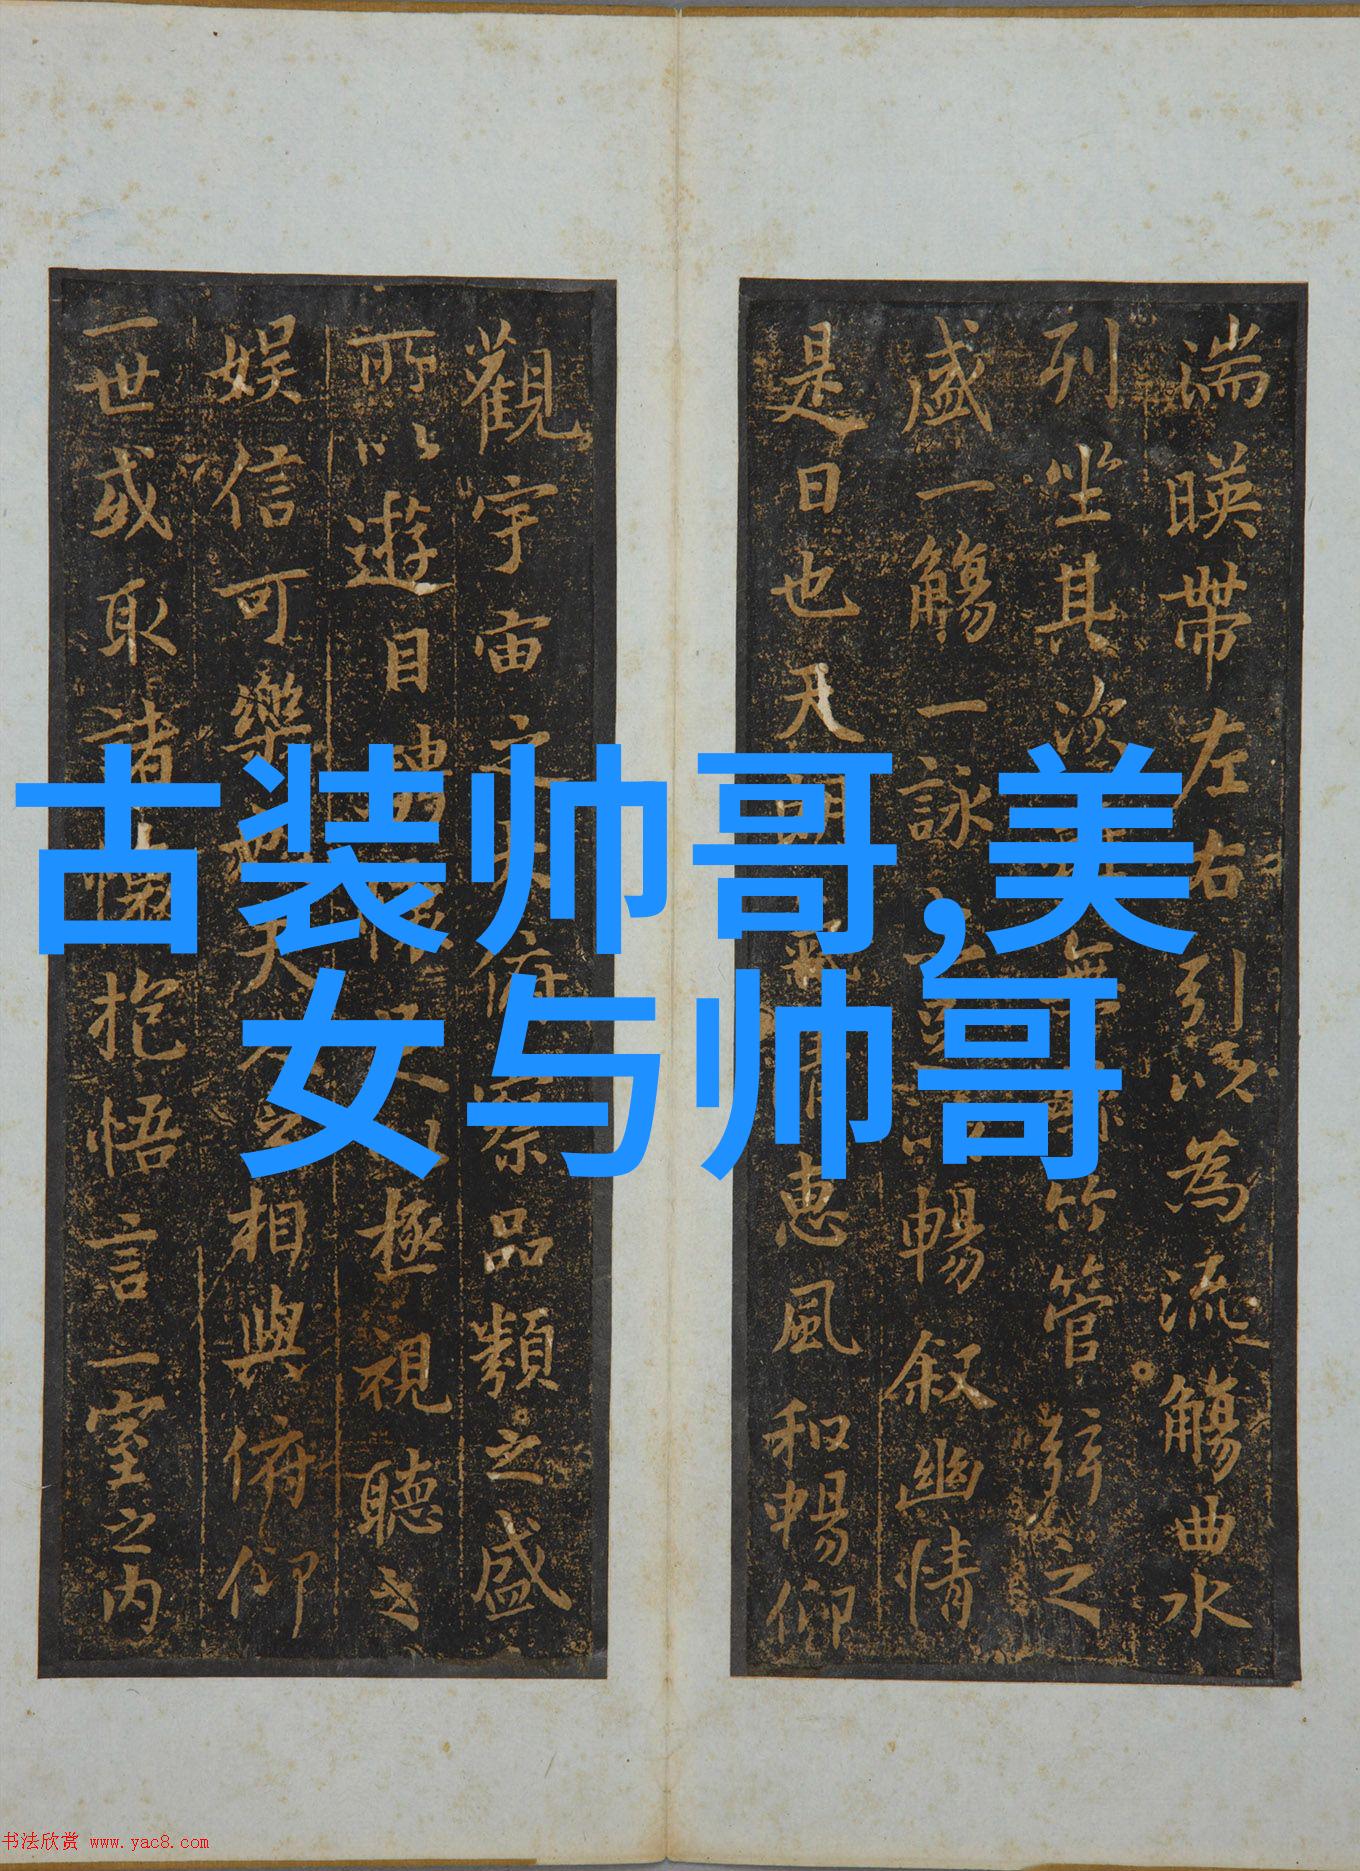 古装帅哥,美
女与帅哥
湍暎帶左右引以為流觴曲水
列坐其次無竹管弦之
盛一觴一詠暢叙幽情
是日也天朗清惠風和暢仰
觀宇宙之俯察品類之盛
所以遊目騁懷極視聽之
娛信可樂夫之相與俯仰
一世或取諸懷抱悟言一室之内
书法欣赏 www.yac8.com